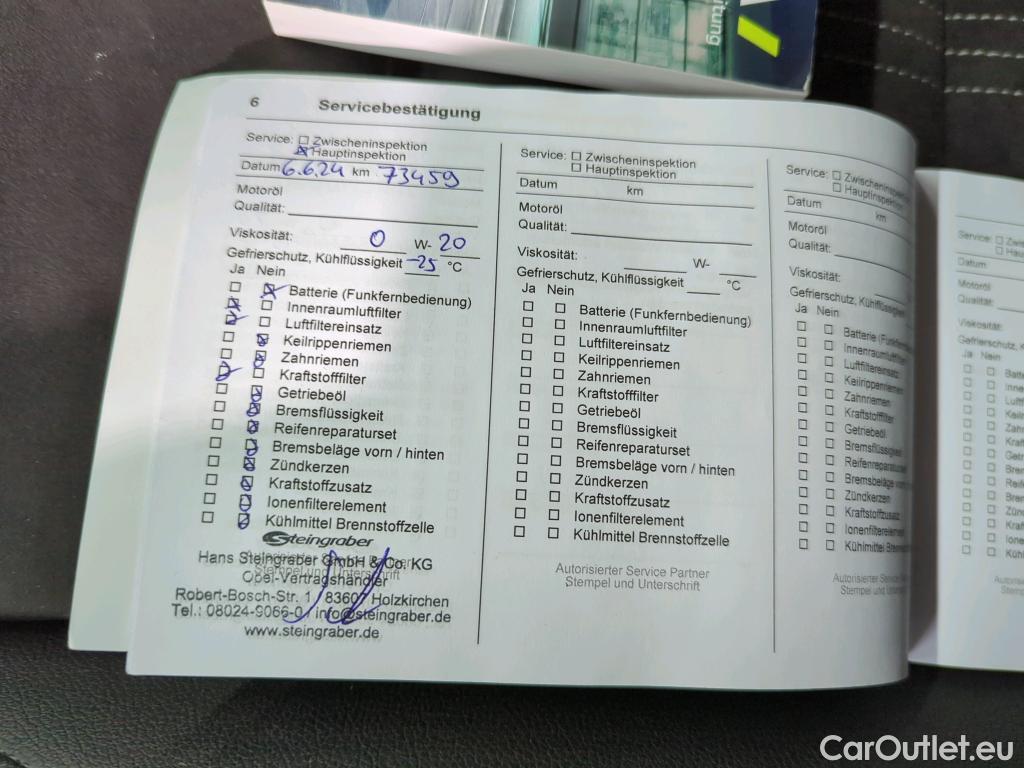 itung
6 Servicebestätigung
Service: Zwischeninspektion
Hauptinspektion
Datum 6.6.24 km 73459
Motoröl
Qualität:
Viskosität: 0 W- 20
Gefrierschutz, Kühlflüssigkeit -25 °C
Ja Nein
Batterie (Funkfernbedienung)
Innenraumluftfilter
Luftfiltereinsatz
Keilrippenriemen
Zahnriemen
Kraftstofffilter
Getriebeöl
Bremsflüssigkeit
Reifenreparaturset
Bremsbeläge vorn / hinten
Zündkerzen
Kraftstoffzusatz
Ionenfilterelement
Kühlmittel Brennstoffzelle
Steingraber
Hans Steingraber GmbH & Co. KG
Opel-Vertragshändler
Stempel und Unterschrift
Robert-Bosch-Str. 1 / 83607 Holzkirchen
Tel.: 08024-9066-0 / info@steingraber.de
www.steingraber.de
Service: Zwischeninspektion
Hauptinspektion
Datum km
Motoröl
Qualität:
Viskosität: W-
Gefrierschutz, Kühlflüssigkeit °C
Ja Nein
Batterie (Funkfernbedienung)
Innenraumluftfilter
Luftfiltereinsatz
Keilrippenriemen
Zahnriemen
Kraftstofffilter
Getriebeöl
Bremsflüssigkeit
Reifenreparaturset
Bremsbeläge vorn / hinten
Zündkerzen
Kraftstoffzusatz
Ionenfilterelement
Kühlmittel Brennstoffzelle
Autorisierter Service Partner
Stempel und Unterschrift
Service: Zwischeninspe
Hauptinspek
Datum km
Motoröl
Qualität:
Viskosität:
Gefrierschutz, Kühlflüssigkeit
Ja Nein
Batterie (Funkfer
Innenraumluftf
Luftfiltereinsatz
Keilrippenriem
Zahnriemen
Kraftstofffilter
Getriebeöl
Bremsflüssigk
Reifenreparatu
Bremsbeläge v
Zündkerzen
Kraftstoffzusa
Ionenfilterelem
Kühlmittel Bren
Autorisierter Service
Stempel und Unters
Service:
Datum
Motoröl
Qualität:
Viskosität:
Gefrierschutz, K
Ja Nein
CarOutlet.eu